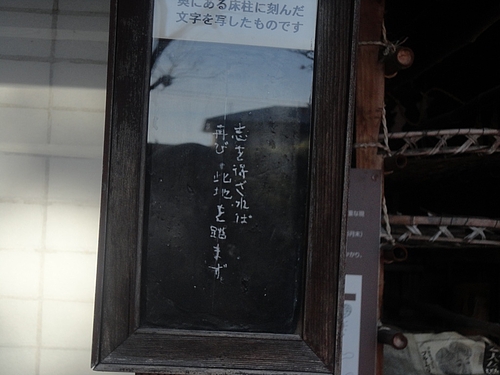 奥にある床柱に刻んだ
文字を写したものです
志を得ざれば
再び此地を踏まず